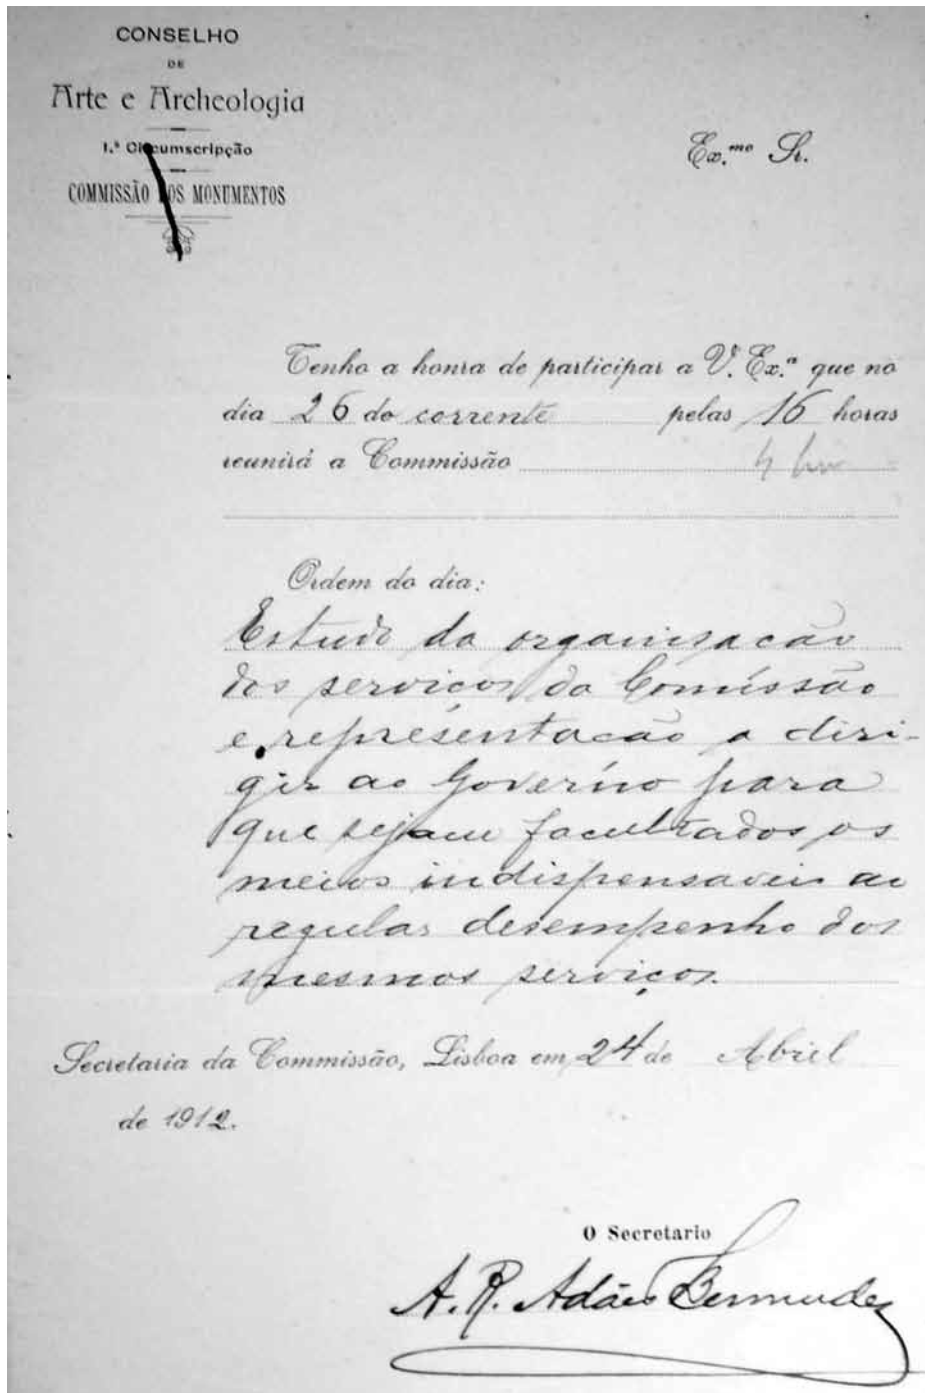 CONSELHO
DE
Arte e Archeologia
1.ª Circumscripção
COMMISSÃO DOS MONUMENTOS
Ex.mo Sr.
Tenho a honra de participar a V. Ex.ª que no
dia 26 do corrente pelas 16 horas
reunirá a Commissão 4
Ordem do dia:
Estudo da organisação
dos serviços da Comissão
e representacão a diri-
gir ao Governo para
que sejam facultados os
meios indispensaveis ao
regular desempenho dos
mesmos serviços.
Secretaria da Commissão, Lisboa em 24 de Abril
de 1912.
O Secretario
A. R. Adães Bermudez